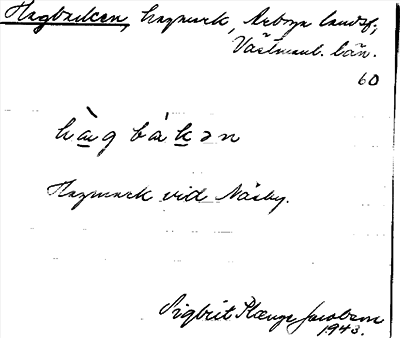 Hagbacken, hagmark, Arboga landsf.,
Västmanl. län.
60
hàg bàkən
Hagmark vid Näsby.
Sigbrit Plænge Jacobson
1943.